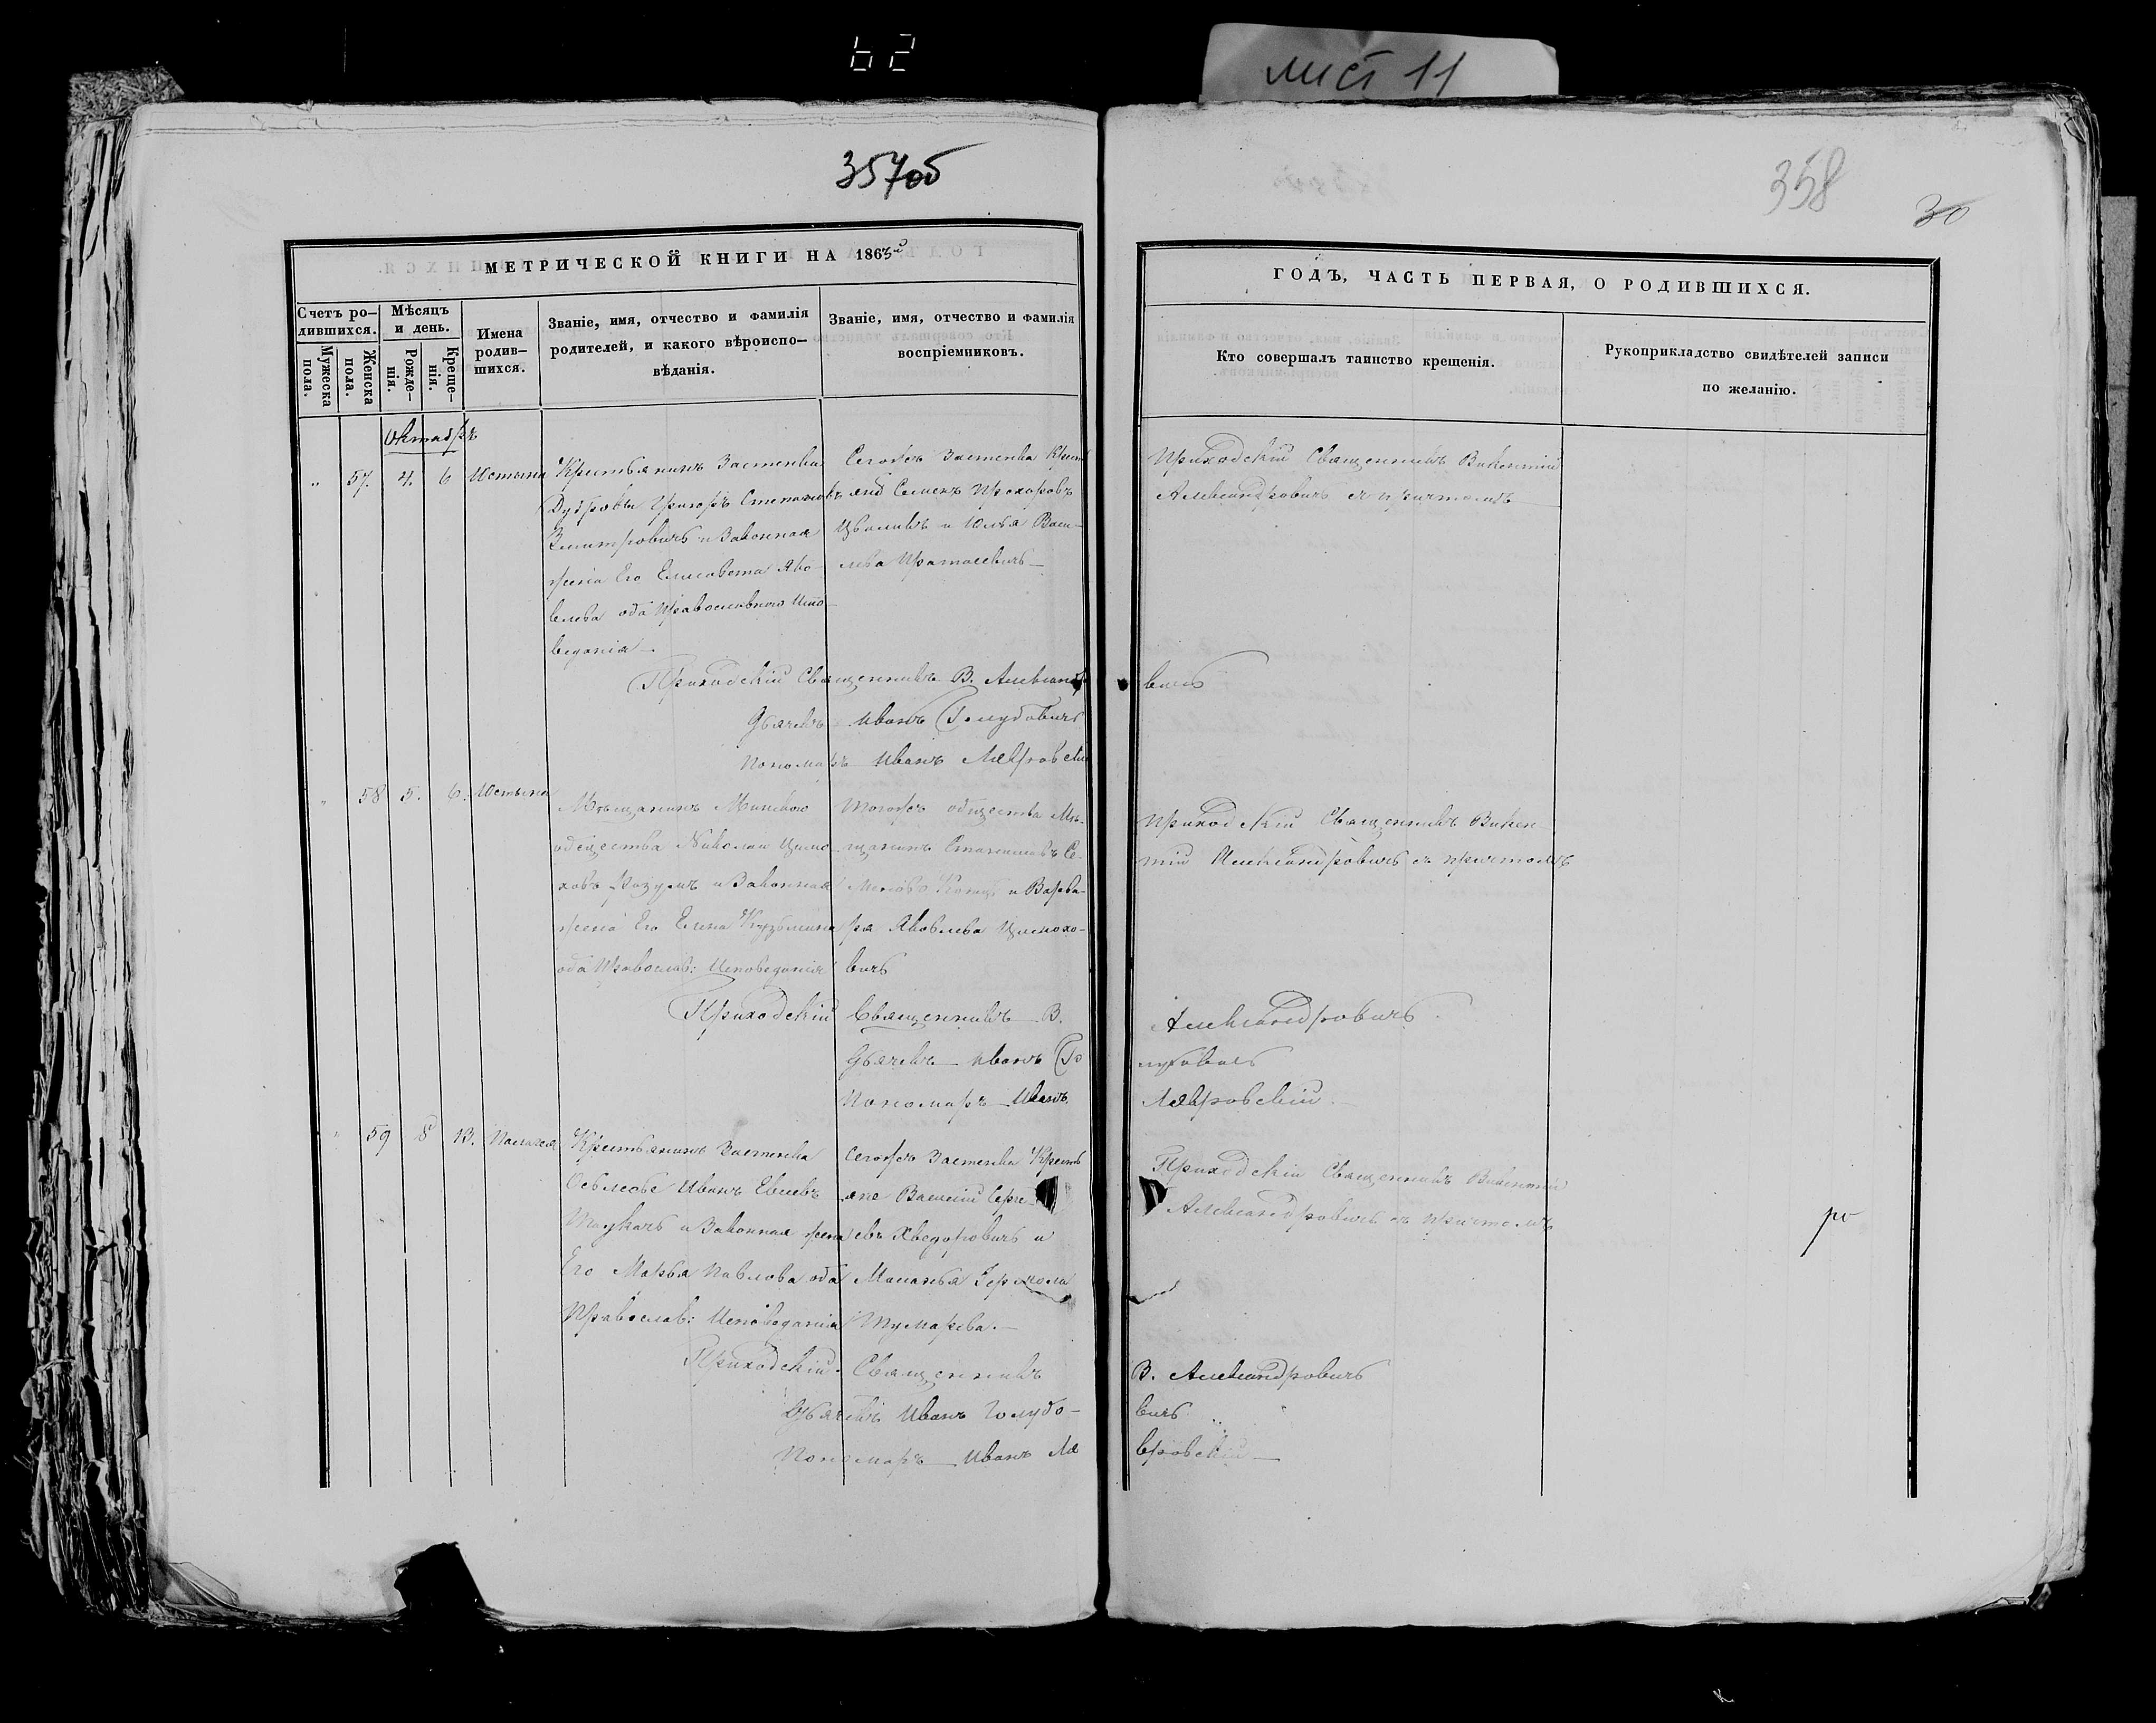 62
лист 11
357об
358
30
МЕТРИЧЕСКОЙ КНИГИ НА 1863й
ГОДЪ, ЧАСТЬ ПЕРВАЯ, О РОДИВШИХСЯ.
Счетъ ро-
дившихся.
Мужеска
пола.
Женска
пола.
Мѣсяцъ
и день.
Рожде-
нія.
Креще-
нія.
Имена
родив-
шихся.
Званіе, имя, отчество и фамилія
родителей, и какого вѣроиспо-
вѣданія.
Званіе, имя, отчество и фамилія
воспріемниковъ.
Кто совершалъ таинство крещенія.
Рукоприкладство свидѣтелей записи
по желанію.
Октябрь
" 57. 4. 6 Устына
Крестьянинъ Застенка
Дубровы Григоръ Степановъ
Змитровичъ и Законная
жена Его Елисавета Яко-
влева оба Православного Испо-
веданія —
Сегожъ Застенка Крест
яне Семенъ Прохоровъ
и Юлья Васи-
лева
Приходскій Священникъ Викентій
Александровичъ съ причтомъ
Приходскій Священникъ В. Александро
вичъ
Дьячекъ Иванъ Голубовичъ
Пономаръ Иванъ Лавровскій
" 58 5. 6. Устына
Мѣщанинъ Минского
общества Николай
Разумъ и Законная
жена Его Елена Кузьмина
оба Православ: Исповеданія
Тогожъ общества Мѣ-
щанинъ Станиславъ Се-
меновъ и Варва-
ра Яковлева
вичъ
Приходскій Священникъ Викен
тій Александровичъ съ причтомъ
Приходскій Священникъ В.
Александровичъ
Дьячекъ — Иванъ Го
лубовичъ
Пономаръ — Иванъ
Лавровскій —
" 59 8 13. Палагея
Крестьянинъ Застенка
Иванъ
и Законная жена
Его Марья Павлова оба
Православ: Исповеданія
Сегожъ Застенка Кресть
яне Василій Серге-
евъ Хведоровичъ и
Маланья
Приходскій Священникъ Викентій
Александровичъ съ причтомъ
Приходскій Священникъ
В. Александровичъ
Дьячекъ Иванъ Голубо-
вичъ
Пономаръ — Иванъ Ла
вровскій —